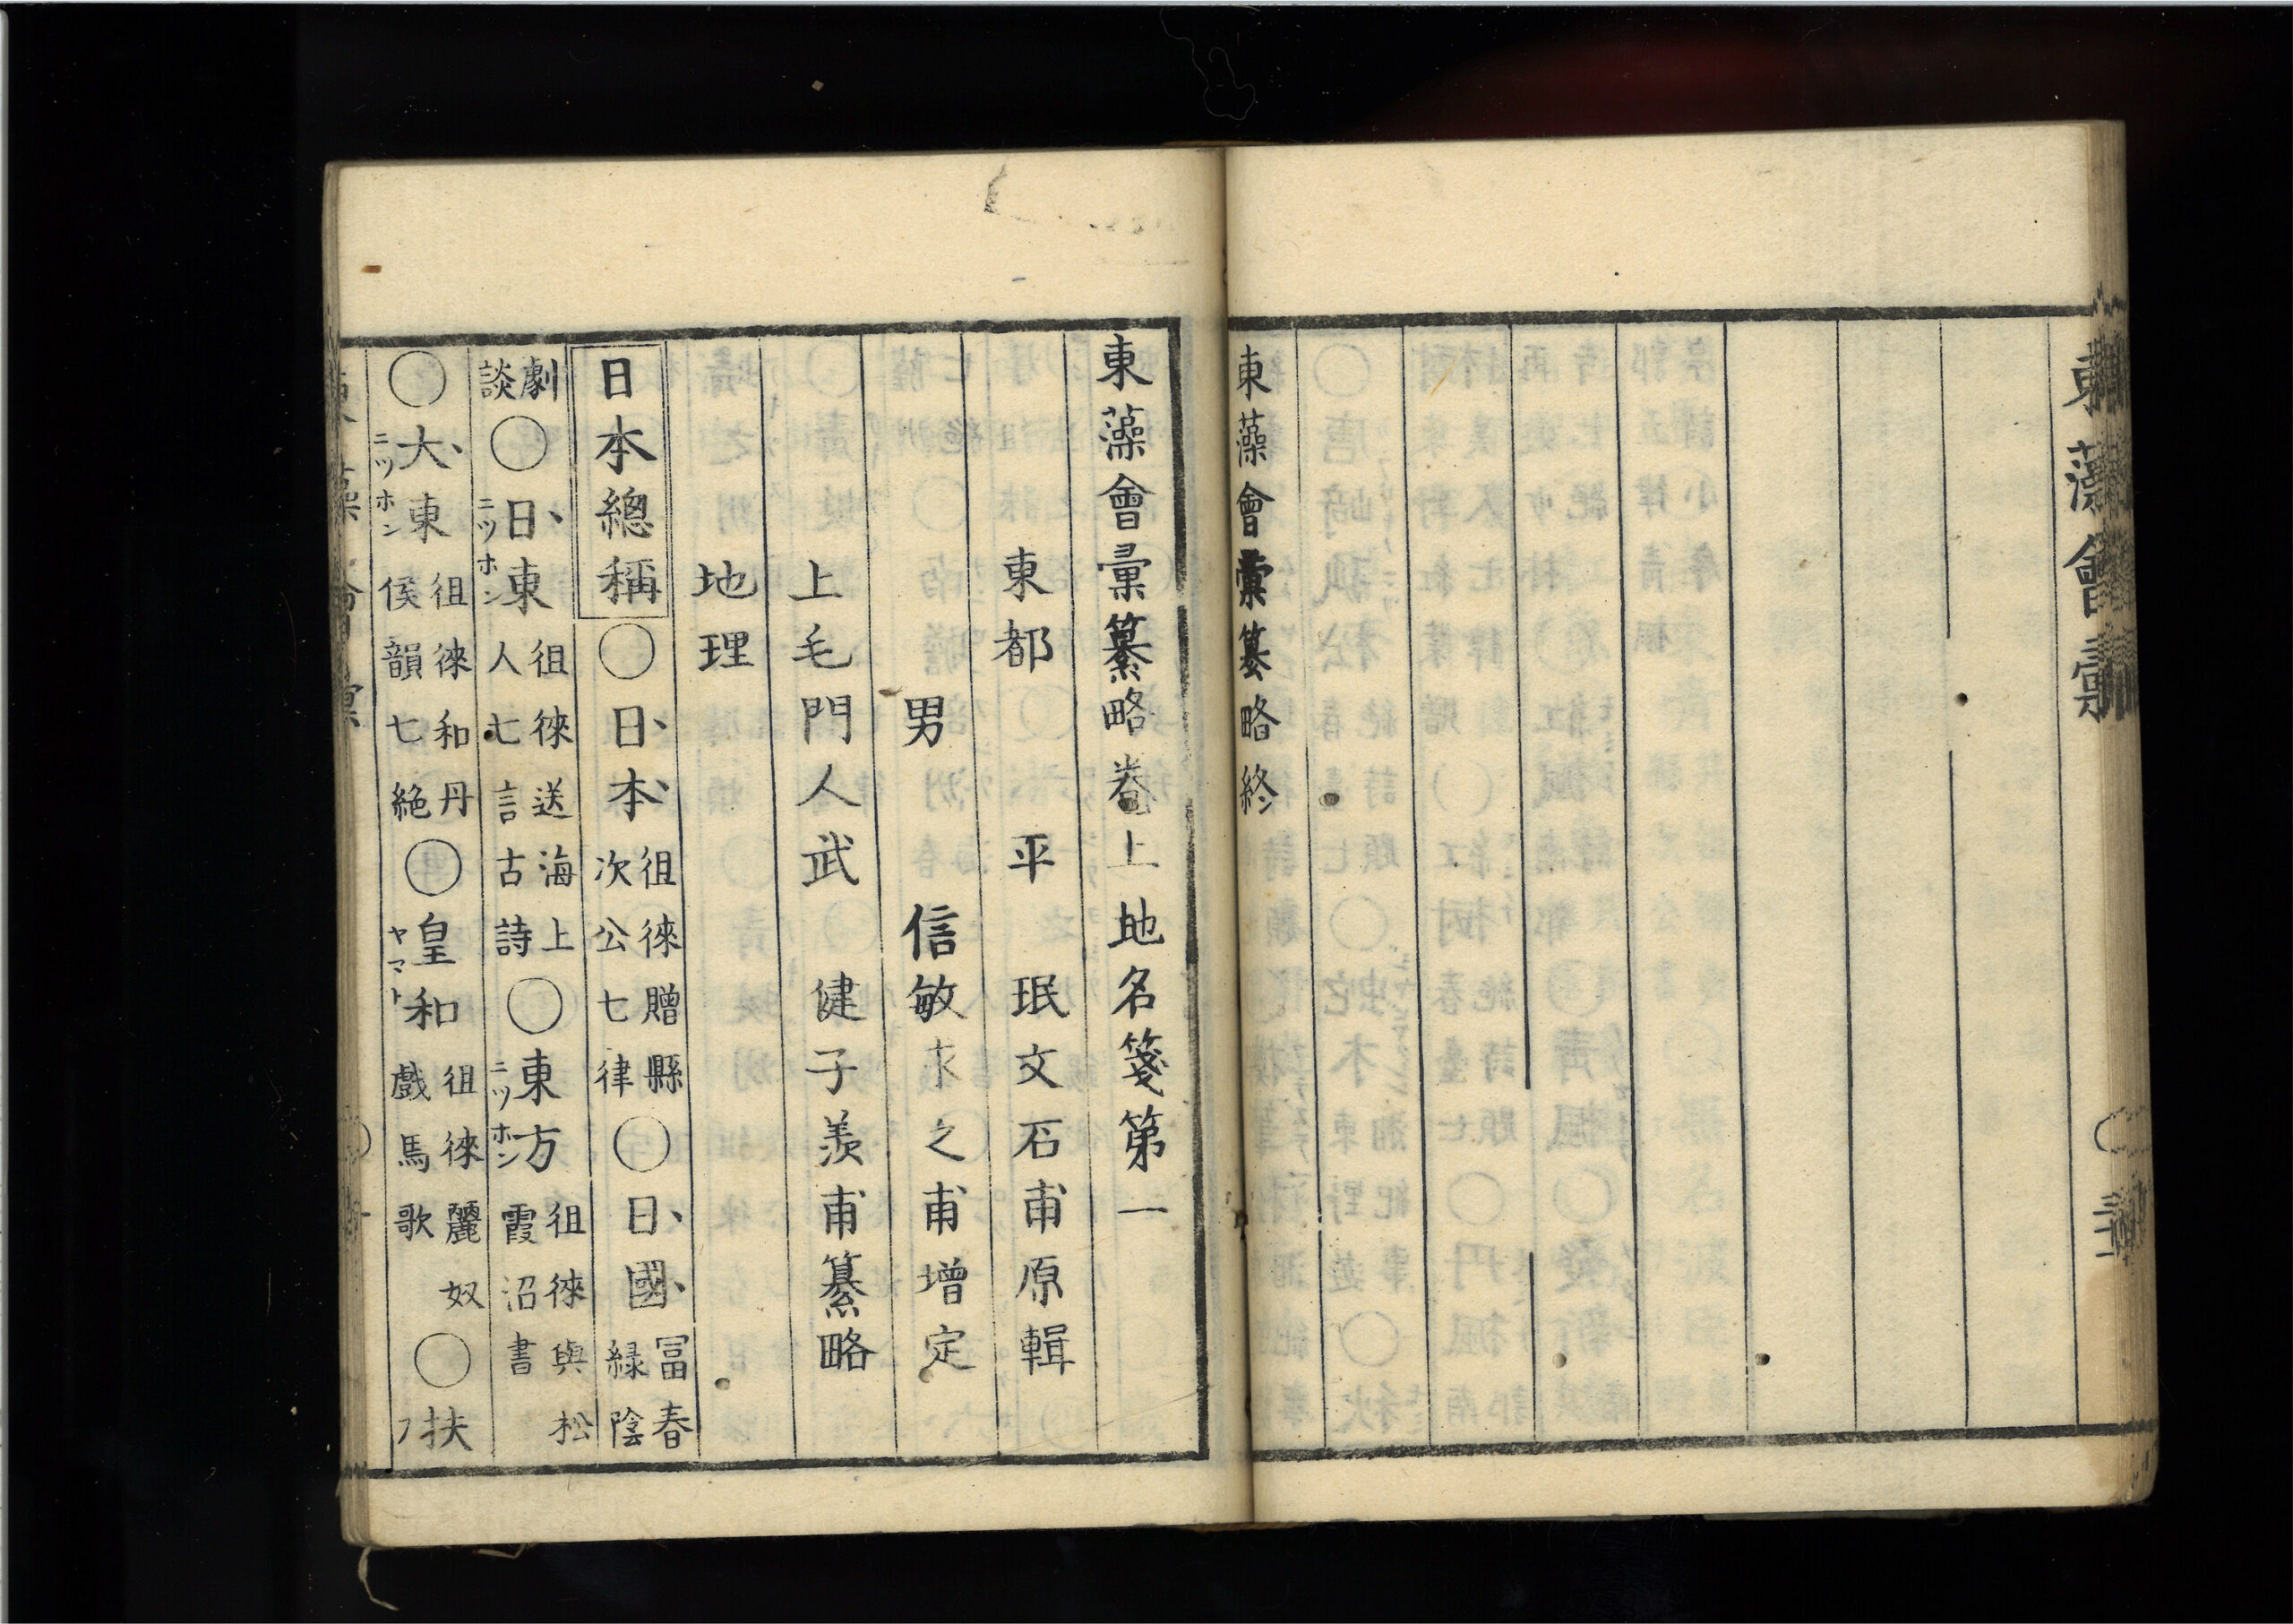 東藻會彙
三十二
東藻會彙纂略終
東藻會彙纂略卷上地名箋第一
東都 平 珉文石甫原輯
男 信敏求之甫增定
上毛門人武 健子羨甫纂略
地理
日本總稱○日本徂徠贈縣次公七律○日國冨春緑陰
劇談○日東ニツホン徂徠送海上人七言古詩○東方ニツホン徂徠與松霞沼書
○大東ニツホン徂徠和丹侯韻七絶○皇和ヤマト徂徠麗奴戲馬歌○扶フ